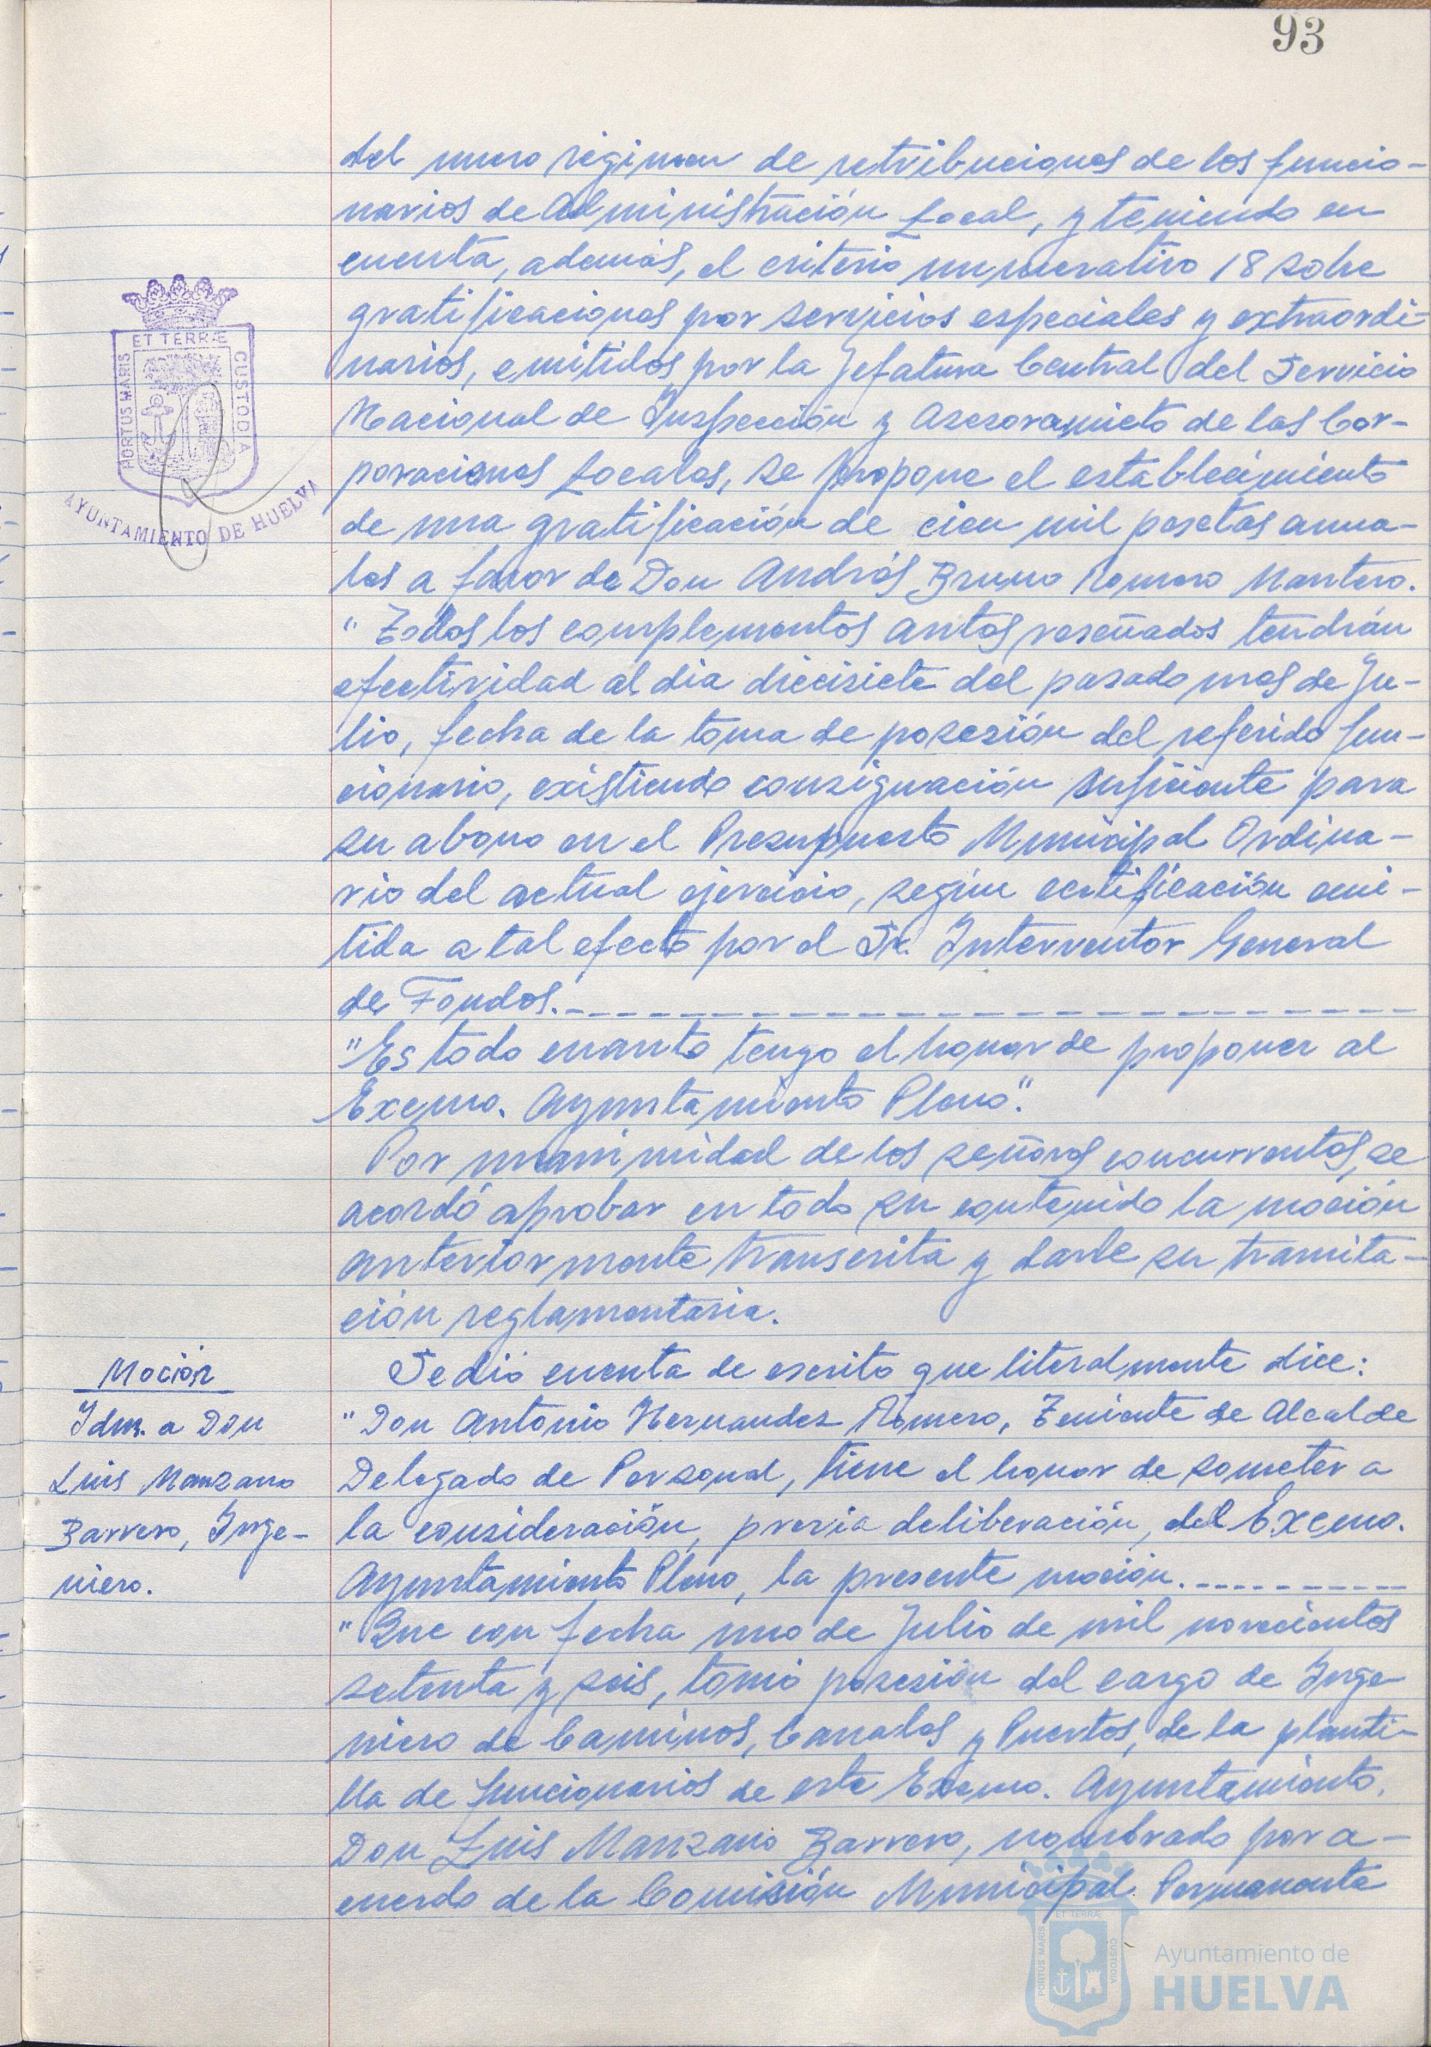 93
del nuevo régimen de retribuciones de los funcio-
narios de Administración Local, y teniendo en
cuenta, además, el criterio numerativo 18 sobre
gratificaciones por servicios especiales y extraordi-
narios, emitidos por la Jefatura Central del Servicio
Nacional de Inspección y Asesoramieto de las Cor-
poraciones Locales, se propone el establecimiento
de una gratificación de cien mil pesetas anua-
les a favor de Don Andrés Bruno Romero Mantero.
"Todos los complementos antes reseñados tendrán
efectividad al dia diecisiete del pasado mes de Ju-
lio, fecha de la toma de posesión del referido fun-
cionario, existiendo consignación suficiente para
su abono en el Presupuesto Municipal Ordina-
rio del actual ejercicio, según certificación emi-
tida a tal efecto por el Sr. Interventor General
de Fondos.
"Es todo cuanto tengo el honor de proponer al
Excmo. Ayuntamiento Pleno".
Por unanimidad de los señores concurrentes, se
acordó aprobar en todo su contenido la moción
anteriormente transcrita y darle su tramita-
ción reglamentaria.
Moción
Idm. a Don
Luis Manzano
Barrero, Inge-
niero.
Se dió cuenta de escrito que literalmente dice:
"Don Antonio Hernandez Romero, Teniente de Alcalde
Delegado de Personal, tiene el honor de someter a
la consideración, previa deliberación, del Excmo.
Ayuntamiento Pleno, la presente moción.
"Que con fecha uno de Julio de mil novecientos
setenta y seis, tomó posesión del cargo de Inge
niero de Caminos, Canales y Puertos, de la planti-
lla de funcionarios de este Excmo. Ayuntamiento,
Don Luis Manzano Barrero, nombrado por a-
cuerdo de la Comisión Municipal Permanente
PORTUS MARIS ET TERRÆ CUSTODIA
AYUNTAMIENTO DE HUELVA
PORTUS MARIS ET TERRÆ CUSTODIA
Ayuntamiento de
HUELVA